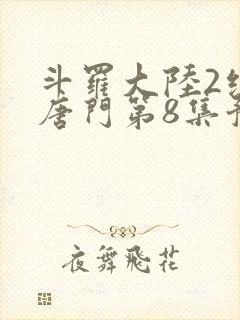 斗羅大陸2
唐門第8集
夜舞飛花